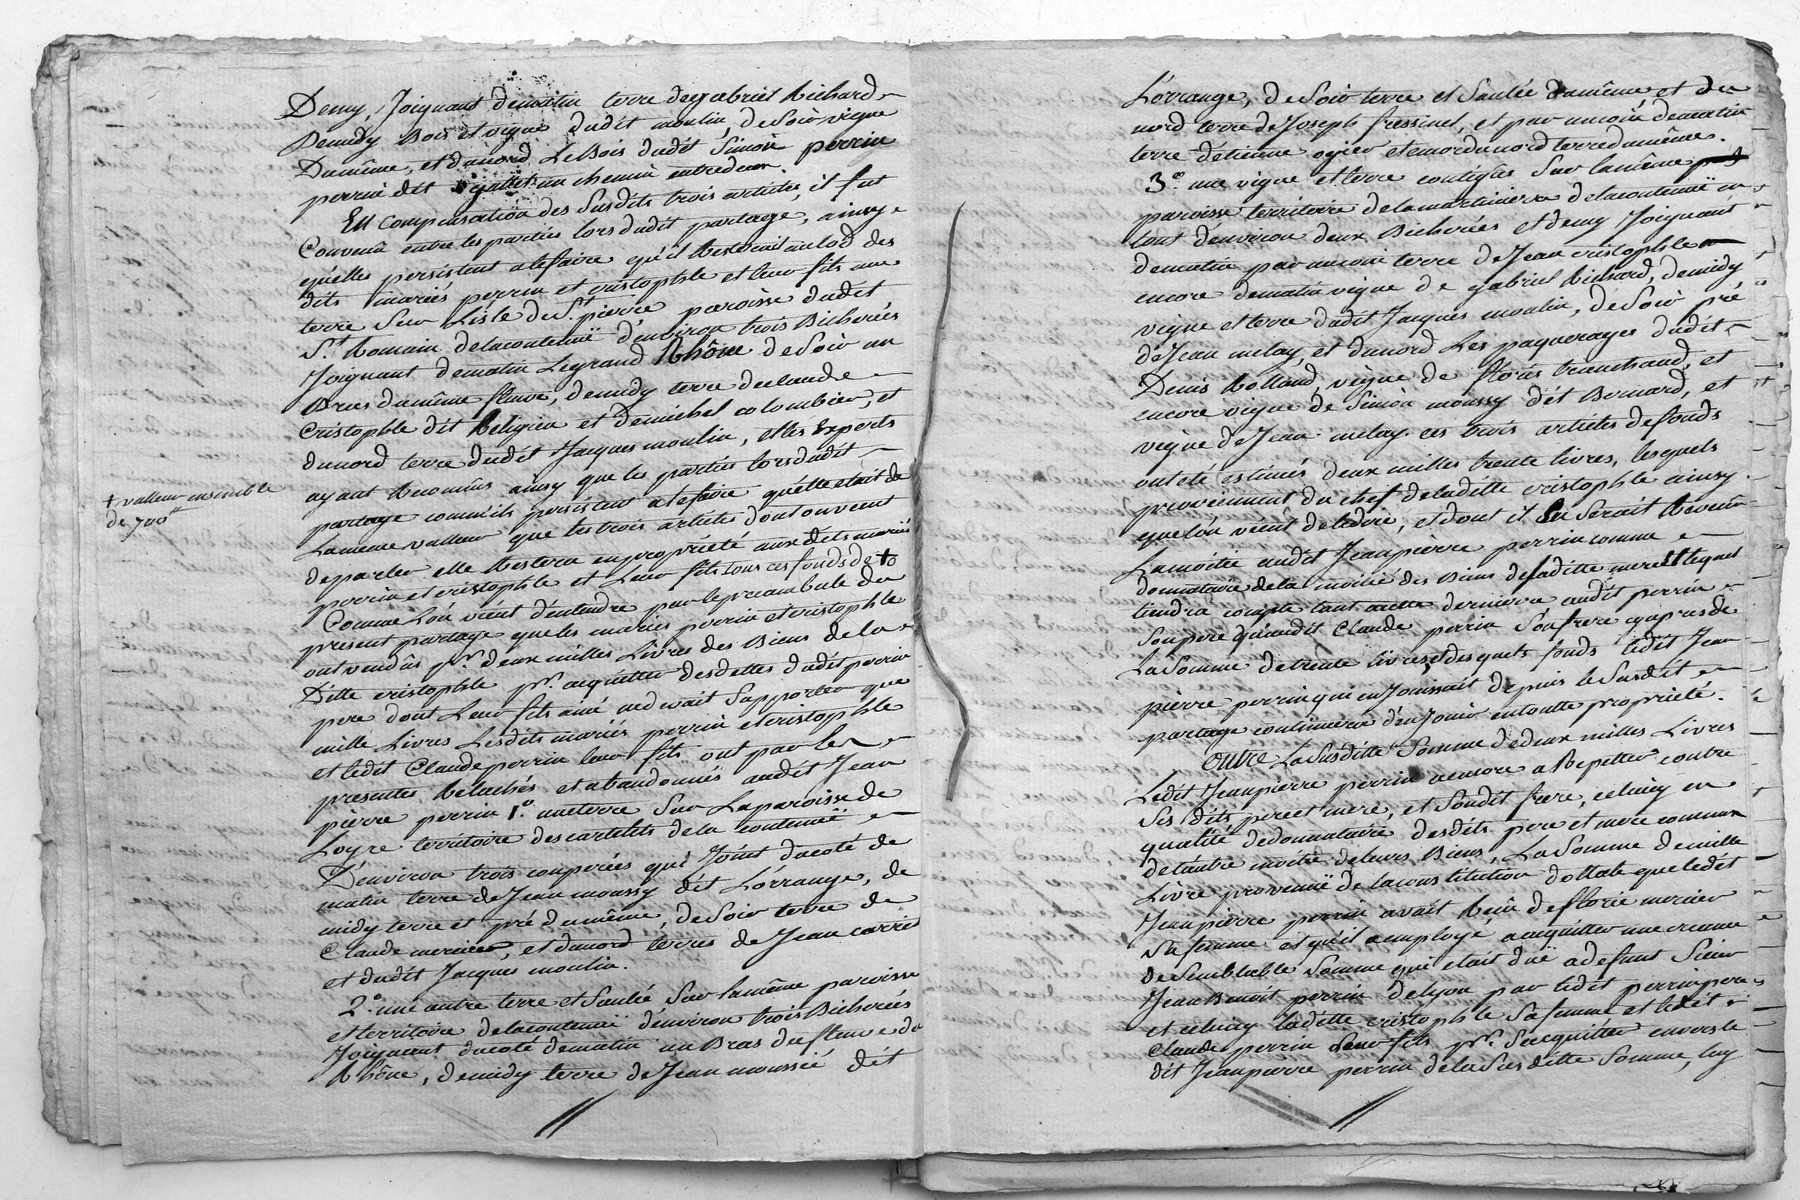 Demy, Joignant dematin terre degabriel Richard
Demidy Bois et vigne dudit moulin de Soir vigne
Dumême, et dunord LeBois dudit Simon perrin
perrin dit gallet un chemin entredeux.
En compensation des Susdits trois articles, il fut
Convenû entre les parties lors dudit partage, ainsy
qu'elles persistent alefaire qu'il Resterait aulod des
dits mariés perrin et cristophle et leur fils une
terre Sur Lisle de St. pierre paroisse dudit
St. Romain delacontenüe d'environ trois Bicherées
Joignant dematin Legrand Rhône de Soir un
Bras dumême fleuve, demidy terre declaude
Cristophle dit Religieu et demichel colombier, et
dunord terre dudit Jacques moulin, et les Experts
ayant Reconnûs ainsy que les parties lors dudit
+ valleur ensemble
de 700ᵗᵗ
partage comm'ils persistent alefaire qu'elle etait de
Lamême valleur que les trois articles dont onvient
deparler elle Restera enpropriété aux dits mariés
perrin et cristophle et Leur fils tous ces fonds de +
Comme Lón vient d'entendre par lepreambule du
present partage que les mariés perrin et cristophle
ont vendûs pr. deux milles Livres des Biens de la
Ditte cristophle pr. acquitter des dettes dudit perrin
pere dont Leur fils ainé nedevait Supporter que
mille Livres Lesdits mariés perrin et cristophle
et ledit Claude perrin leur fils ont par les
presentes Relachés et abandonnés audit Jean
pierre perrin 1.° une terre Sur Laparoisse de
Loyre territoire des cartelets de la contenüe
D'environ trois couperées qui Joint ducoté de
matin terre de Jean moussy dit Lórrange, de
midy terre et pré dumême, de Soir terre de
Claude mercier, et dunord terres de Jean
et dudit Jacques moulin.
2.° une autre terre et Saulée Sur lamême paroisse
et territoire delacontenüe d'environ trois Bicherées
Joignant ducoté dematin un Bras du fleuve du
Rhône, demidy terre de Jean moussié dit
Lórrange, de Soir terre et Saulée dumême et du
nord terre de Joseph fressinel, et par aucoin dematin
terre d'etienne ogier et encor dunord terre dumême.
3.° une vigne et terre contigûe Sur lamême
paroisse territoire delamartiniere delacontenüe en
tout d'environ deux Bicherées et demy Joignant
dematin par aucoin terre de Jean cristophle
encore dematin vigne de gabriel Richard, demidy
vigne et terre dudit Jacques moulin, de Soir pré
de Jean melay, et dunord Les paquerages dudit
Denis Rolland, vigne de floris tranchand, et
encore vigne de Simon moussy dit Bernard, et
vigne de Jean melay. ces trois articles defonds
ont eté estimés deux milles trente livres, lesquels
proviennent du chef deladitte cristophle ainsy
que lón vient deledire, et dont il En Serait Revenû
Lamoitié audit Jeanpierre perrin comme
donnataire dela moitié des Biens desaditte mere lequel
tiendra compte tant audit perrin
Sonpere qu'audit Claude perrin Sonfrere cyaprès de
La Somme detrente livres, desquels fonds ledit Jean
pierre perrin qui en Jouissait depuis le Susdit
partage continuera d'en Jouir entoutte propriété.
Outre La Susditte Somme de deux milles Livres
Ledit Jeanpierre perrin aencore a Repetter contre
Ses dits pere et mere, et Sondit frere, celuicy en
qualité dedonnataire desdits pere et mere commun
delautre moitié deleurs Biens, La Somme demille
Livre provenüe de laconstitution dottale queledit
Jeanpierre perrin avait Reçû de florie mercier
Sa femme et qu'il aemployé aacquitter une creance
de Semblable Somme qui etait düe adefunt Sieur
Jean Benoit perrin delyon par ledit perrinpere
et celuicy ladite cristophle Sa femme et ledit
Claude perrin Leur fils pr. Sacquitter envers le
dit Jeanpierre perrin delaSusditte Somme, luy